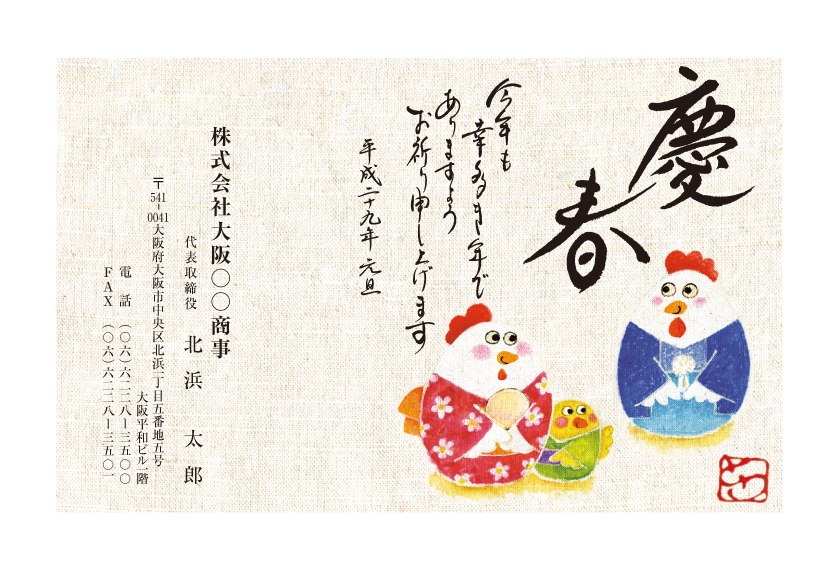 慶春
今年も
幸多き年で
ありますよう
お祈り申し上げます
平成二十九年 元旦
株式会社大阪〇〇商事
代表取締役 北浜 太郎
〒541-0041大阪府大阪市中央区北浜一丁目五番地五号
大阪平和ビル一階
電話 (〇六)六二二八ー三五〇〇
FAX (〇六)六二二八ー三五〇一